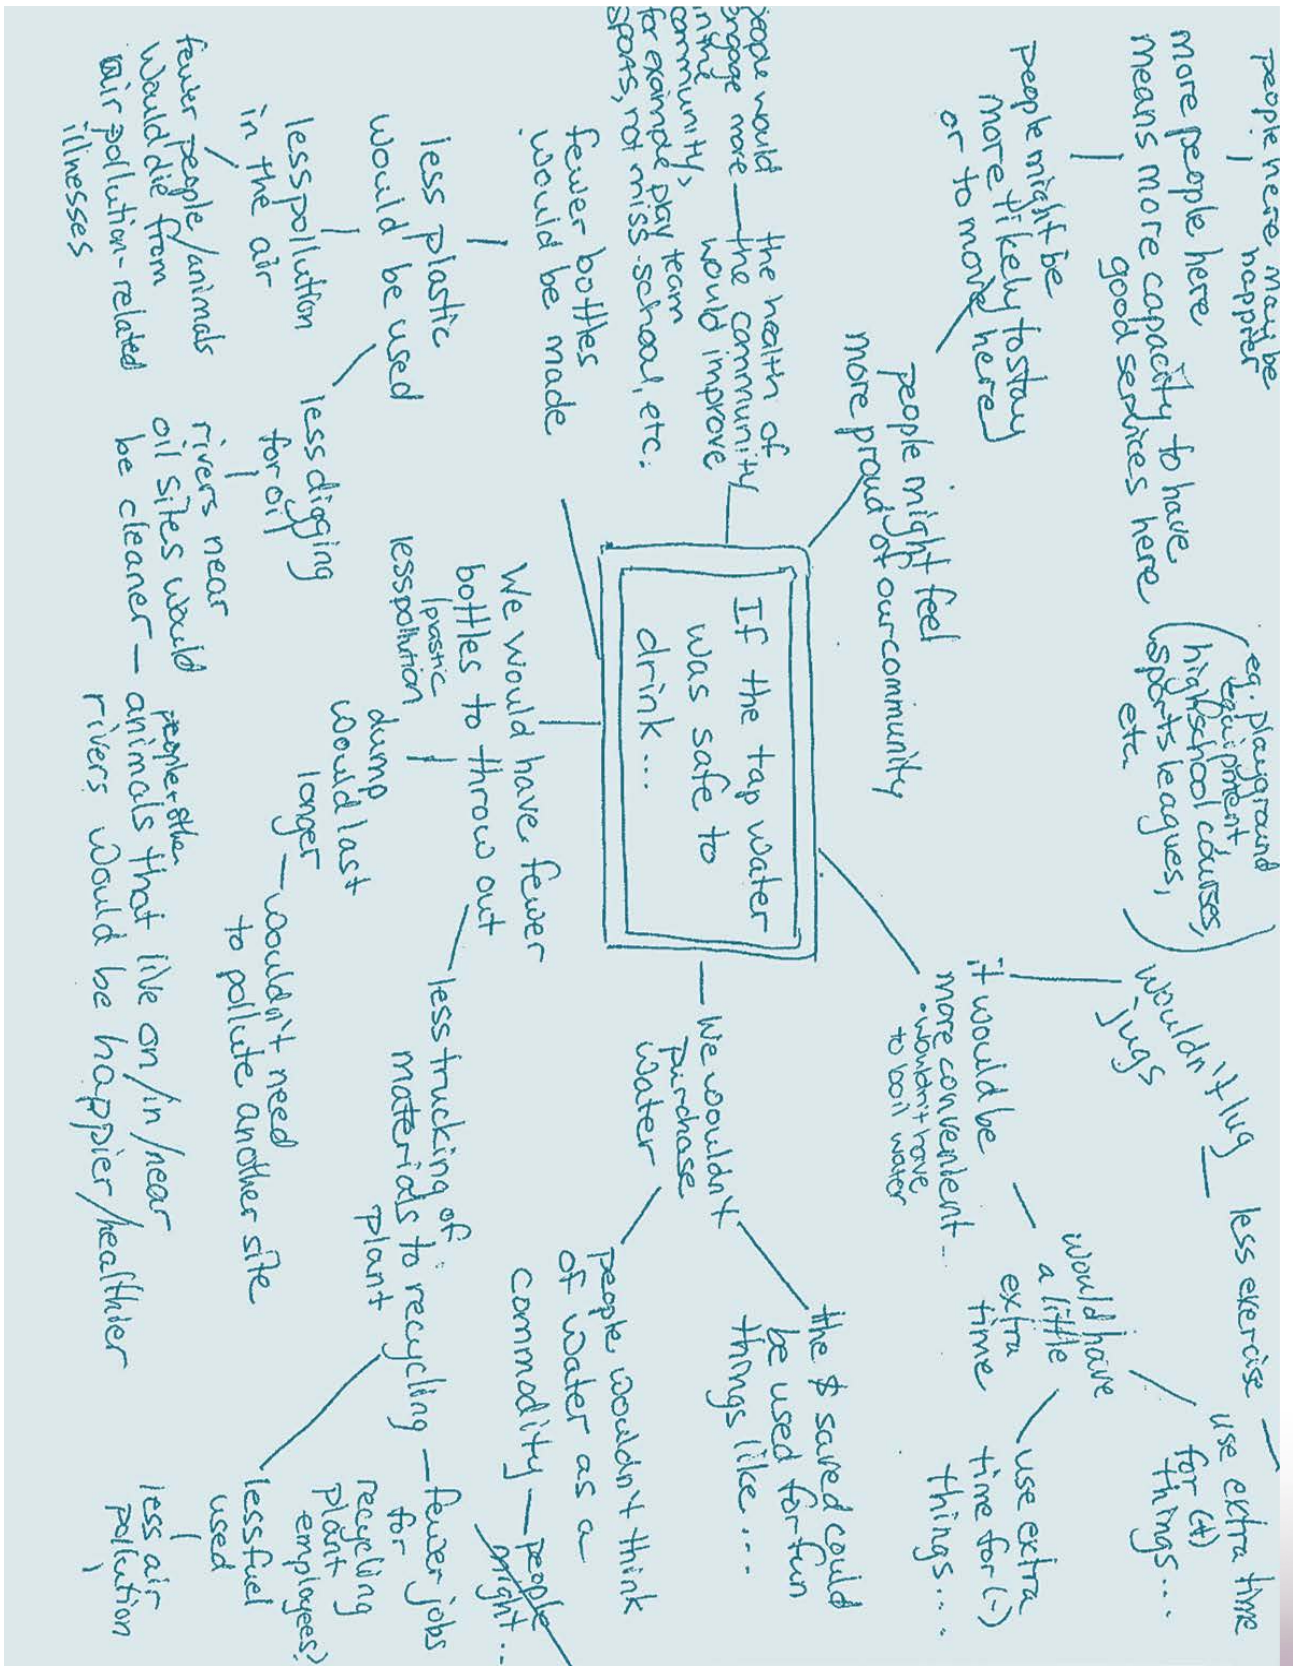 If the tap water
was safe to
drink...
people might feel
more proud of our community
people might be
more likely to stay
or to move here
more people here
means more capacity to have
good services here
(eg. playground
equipment,
highschool courses,
sports leagues,
etc.)
people here may be
happier
the health of
the community
would improve
people would
engage more
in the
community,
for example play team
sports, not miss school, etc.
fewer bottles
would be made
less plastic
would be used
less pollution
in the air
fewer people/animals
would die from
air pollution-related
illnesses
less digging
for oil
rivers near
oil sites would
be cleaner — people & other
animals that live on/in/near
rivers would be happier/healthier
We would have fewer
plastic
bottles to throw out
less pollution
dump
would last
longer — wouldn't need
to pollute another site
less trucking of
materials to recycling
plant
fewer jobs
for
recycling
plant
employees?
less fuel
used
less air
pollution
We wouldn't
purchase
water
people wouldn't think
of water as a
commodity — people
might...
the $ saved could
be used for fun
things like....
it would be
more convenient...
• wouldn't have
to boil water
wouldn't lug
jugs
less exercise
would have
a little
extra
time
use extra time
for (+)
things...
use extra
time for (-)
things....